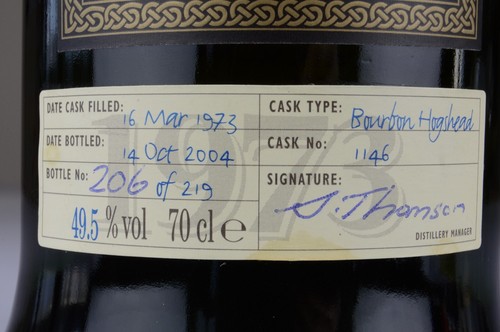 DATE CASK FILLED: 16 Mar 1973
DATE BOTTLED: 14 Oct 2004
BOTTLE No: 206 of 219
49.5 % vol 70 cl e
CASK TYPE: Bourbon Hogshead
CASK No: 1146
SIGNATURE: J. Thomson
DISTILLERY MANAGER
1973